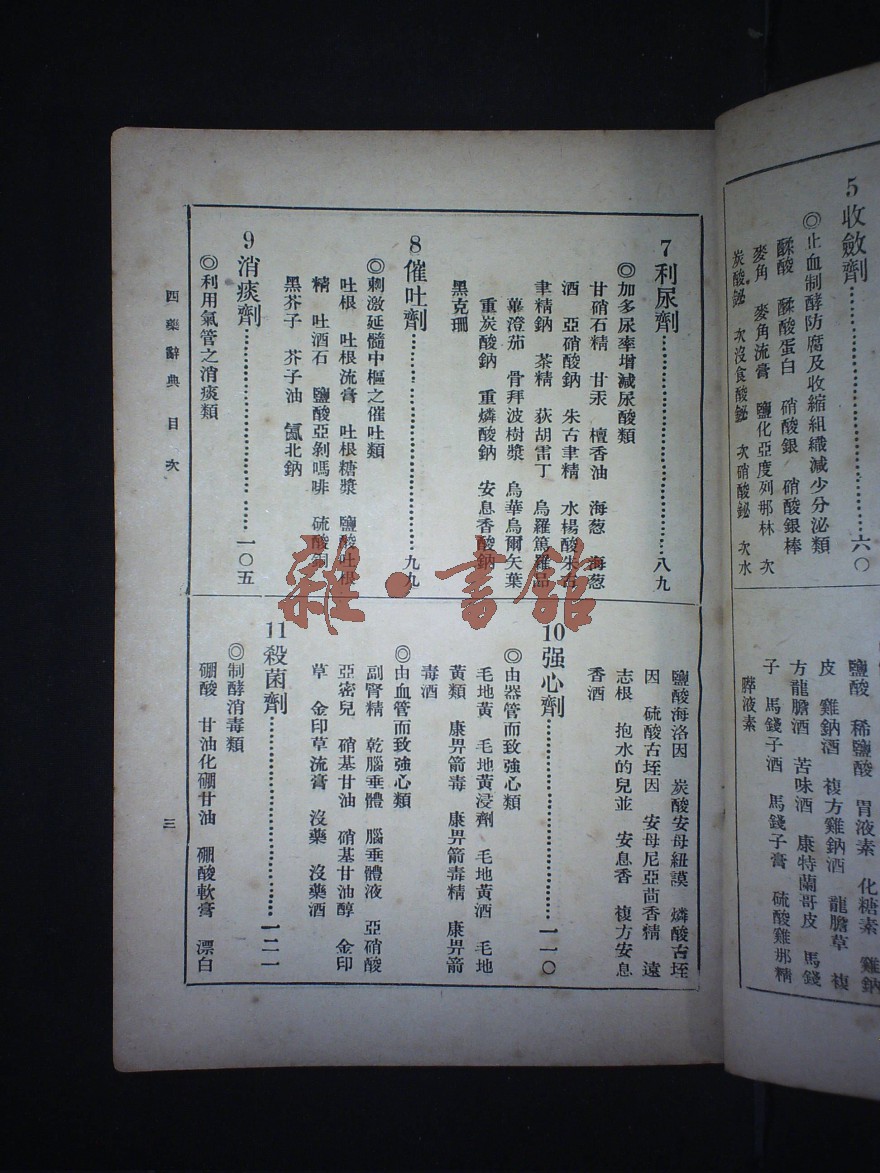 5 收斂劑……六〇
◎止血制酵防腐及收縮組織減少分泌類
鞣酸 鞣酸蛋白 硝酸銀 硝酸銀棒
麥角 麥角流膏 鹽化亞度列那林 次
炭酸鉍 次沒食酸鉍 次硝酸鉍 次水
鹽酸 稀鹽酸 胃液素 化糖素 雞鈉
皮 雞鈉酒 複方雞鈉酒 龍膽草 複
方龍膽酒 苦味酒 康特蘭哥皮 馬錢
子 馬錢子酒 馬錢子膏 硫酸雞那精
膵液素
7 利尿劑……八九
◎加多尿率增減尿酸類
甘硝石精 甘汞 檀香油 海葱 海葱
酒 亞硝酸鈉 朱古聿精 水楊酸朱古
聿精鈉 茶精 荻胡雷丁 烏羅篤羅品
蓽澄茄 骨拜波樹漿 烏華烏爾矢葉
重炭酸鈉 重燐酸鈉 安息香酸鈉
黑克珊
8 催吐劑……九九
◎刺激延髓中樞之催吐類
吐根 吐根流膏 吐根糖漿 鹽酸吐根
精 吐酒石 鹽酸亞剝嗎啡 硫酸銅
黑芥子 芥子油 氯北鈉
9 消痰劑……一〇五
◎利用氣管之消痰類
鹽酸海洛因 炭酸安母紐謨 燐酸古垤
因 硫酸古垤因 安母尼亞茴香精 遠
志根 抱水的兒並 安息香 複方安息
香酒
10 强心劑……一一〇
◎由器管而致強心類
毛地黃 毛地黃浸劑 毛地黃酒 毛地
黃類 康毘箭毒 康毘箭毒精 康毘箭
毒酒
◎由血管而致强心類
副腎精 乾腦垂體 腦垂體液 亞硝酸
亞密兒 硝基甘油 硝基甘油醇 金印
草 金印草流膏 沒藥 沒藥酒
11 殺菌劑……一二一
◎制酵消毒類
硼酸 甘油化硼甘油 硼酸軟膏 漂白
西藥辭典 目次
三
雜·書館